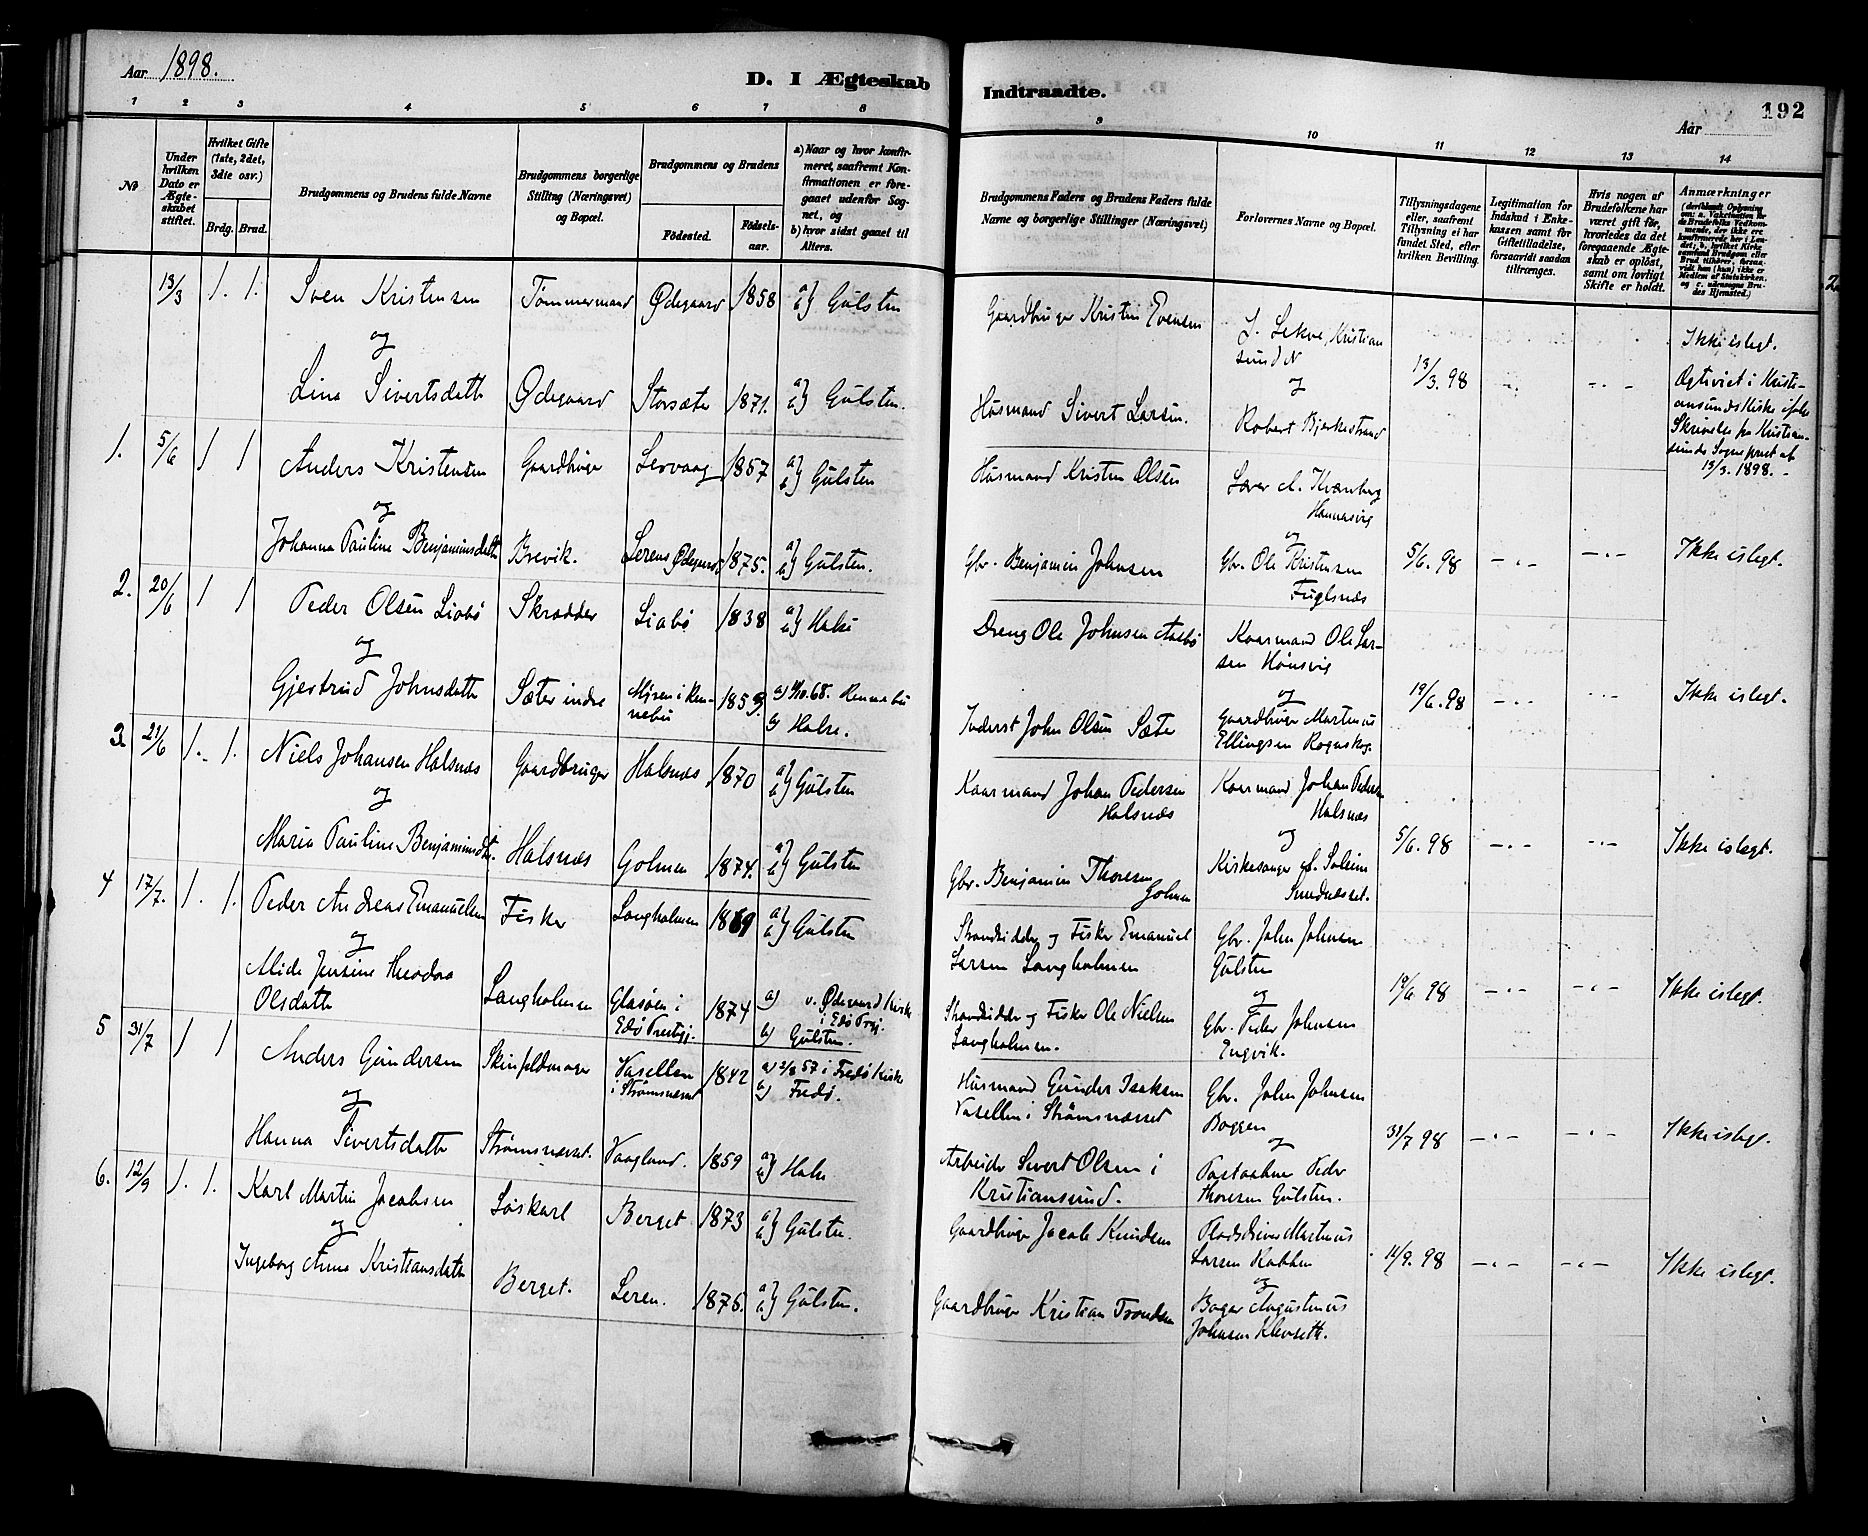 Aar 1898.
D. I Ægteskab
Indtraadte.
192
Aar
1 2 3 4 5 6 7 8
9 10 11 12 13 14
No
Under hvilken Dato er Ægteskabet stiftet.
Hvilket Gifte (1ste, 2det, 3die osv.)
Brdg. Brud.
Brudgommens og Brudens fulde Navne
Brudgommens borgerlige Stilling (Næringsvei) og Bopæl.
Brudgommens og Brudens
Fødested.
Fødselsaar.
a) Naar og hvor konfirmeret, saafremt Konfirmationen er foregaaet udenfor Sognet, og
b) hvor sidst gaaet til Alters.
Brudgommens Faders og Brudens Faders fulde Navne og borgerlige Stillinger (Næringsvei)
Forlovernes Navne og Bopæl.
Tillysningsdagene eller, saafremt Tillysning ei har fundet Sted, efter hvilken Bevilling.
Legitimation for Indskud i Enkekassen samt for Giftetilladelse, forsaavidt saadan tiltrænges.
Hvis nogen af Brudefolkene har været gift før, hvorledes da det foregaaende Ægteskab er opløst, samt om lovligt Skifte er holdt.
Anmærkninger
13/3 1. 1. Sven Kristensen Tømmermand Ødegaard 1858 a) b) Gulsten
Gaardbruger Kristen Evensen
L. Lekve, Kristiansund N
og
og
13/3. 98
Ikke islegt.
Lina Sivertsdatt Ødegaard Storsæter 1871. a) b) Gulsten.
Husmand Sivert Larsen.
Robert Bjerkestrand
Ægteviet i Kristiansunds Kirke ifølge Skrivelse fra Kristiansunds Sogneprest af 13/3. 1898.
1. 5/6 1 1 Anders Kristensen Gaardbruger Lervaag 1857 a) b) Gulsten
Husmand Kristen Olsen
Hannasvig
og
og
Johanna Pauline Benjaminsdatt Brevik. Lerens Ødegaard 1875. a) b) Gulsten.
Gbr. Benjamin Johnsen
Gbr. Ole Kristensen Fuglsnæs
5/6. 98
Ikke islegt.
2. 20/6 1 1 Peder Olsen Liabø Skrædder Liabø 1838 a) b) Halse
Dreng Ole Johnsen Aasbø
Kaarmand Ole Larsen Hønsvig
og
og
Gjertrud Johnsdatt Sæter indre Myren i Rennebu 1859. a) 4/10.68. Rennebu b) Halse.
Inderst John Olsen Sæter
Gaardbruger Martinus Ellingsen Rognskog.
19/6. 98
Ikke islegt.
3. 21/6 1. 1. Niels Johansen Halsnæs Gaardbruger Halsnæs 1870 a) b) Gulsten
Kaarmand Johan Pedersen Halsnæs
Kaarmand Johan Pedersen Halsnæs
og
og
Maria Pauline Benjaminsdt. Halsnæs Golmen 1874. a) b) Gulsten
Gbr. Benjamin Thoresen Golmen
Kirkesanger A. Soleim
5/6. 98
Ikke islegt.
4 17/7. 1. 1. Peder Andreas Emanuelsen Fisker Langholmen 1869 a) b) Gulsten
Strandsidder og Fisker Emanuel Larsen Langholmen
Gbr. John Johnsen Gulsten
og
og
Alide Jensine Theodora Olsdatt Langholmen Glasøen i Edø Prestgj. 1874 a) v. Ødegaard Kirke i Edø Prgj. b) Gulsten.
Strandsidder og Fisker Ole Nielsen Langholmen.
Gbr. Peder Johnsen Engvik.
19/6 98
Ikke islegt.
5 31/7 1 1 Anders Gundersen Skinfeldmager Vasellen i Strømsnæsset 1842 a) 2/8 57 i Fredø Kirke b) Fredø.
Husmand Gunder Isaksen Vasellen i Strømsnæsset
Gbr. John Johnsen Boggen
og
og
Hanna Sivertsdatt Strømsnæsset. Vaagland. 1859 a) b) Halse
Arbeider Sivert Olsen i Kristiansund.
Peder Thoresen Gulsten.
31/7 98
Ikke islegt.
6. 12/9 1. 1. Karl Martin Jacobsen Løskarl Berget 1873 a) b) Gulsten.
Gaardbruger Jacob Knudsen
Pladsdriver Martinus Larsen Rabben
og
og
11/9. 98
Ikke islegt.
Ingeborg Anna Kristiansdatt Berget. Leren. 1875. a) b) Gulsten.
Gaardbruger Kristian Trondsen
Bager Augustinus Johnsen Klevseth.